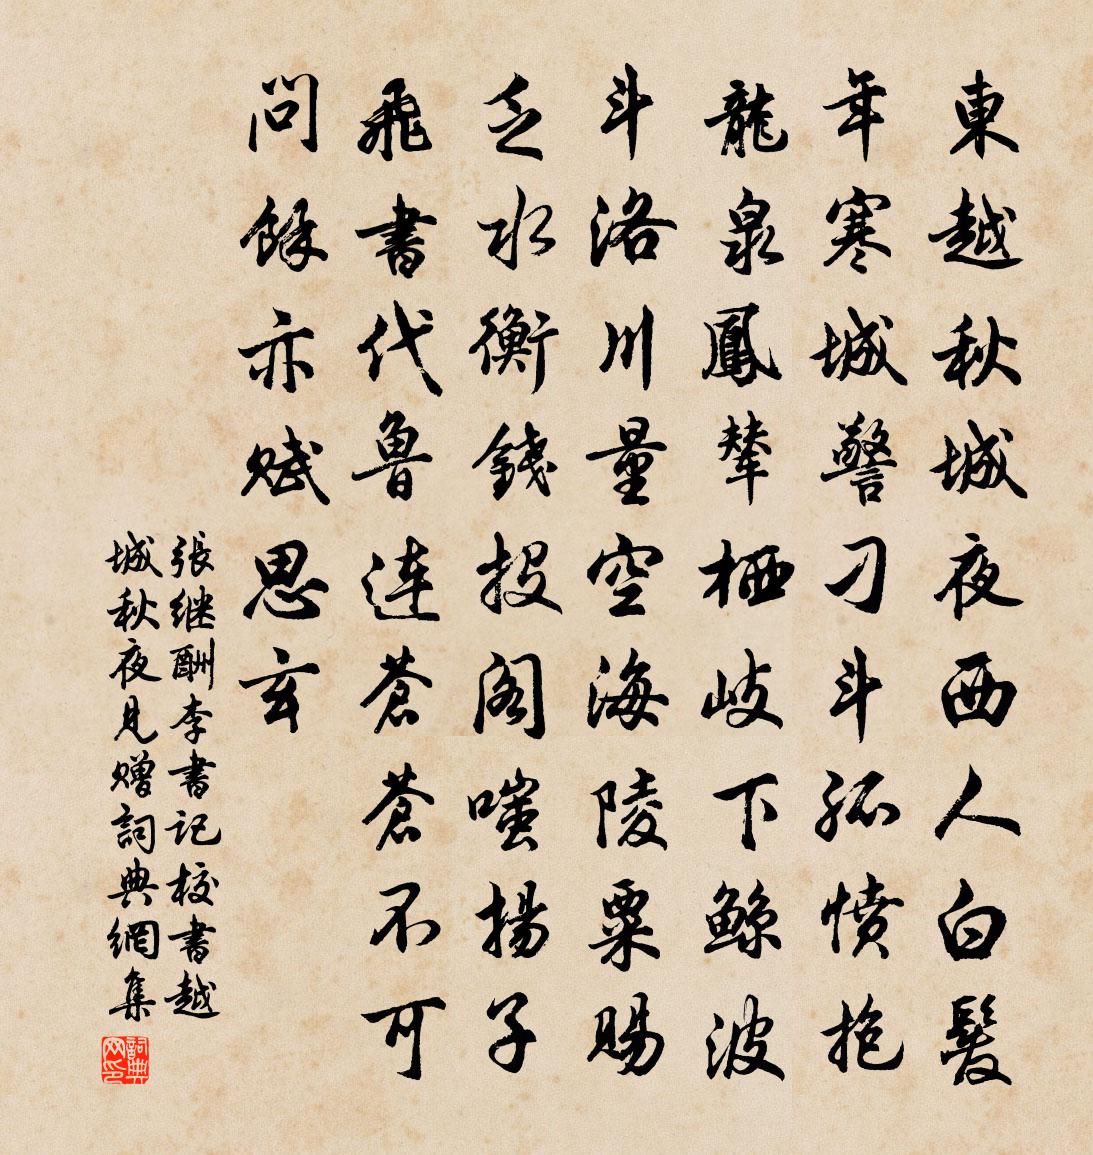 東越秋城夜西人白髮
年寒城警刁斗孤憤抱
龍泉鳳輦栖岐下鯨波
斗洛川量空海陵粟賜
乏水衡錢投閣嗤揚子
飛書代魯連蒼蒼不可
問餘亦賦思玄
張继酬李書記校書越
城秋夜見贈詞典網集
詞典网印